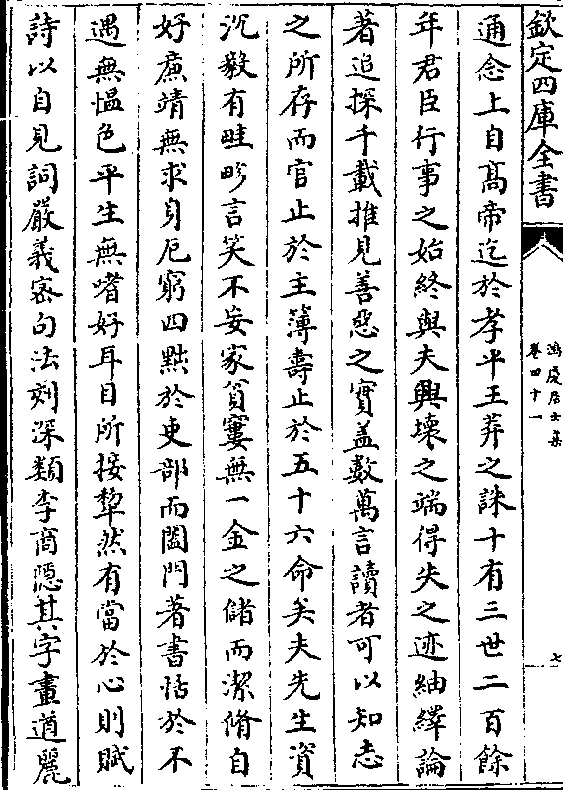 欽定四庫全書
鴻慶居士集
卷四十一
七
通念上自髙帝迄於孝平王莽之誅十有三世二百餘
年君臣行事之始終與夫興壞之端得失之迹紬繹論
著追探千載推見善惡之實葢數萬言讀者可以知志
之所存而官止於主簿壽止於五十六命矣夫先生資
沉毅有畦畛言笑不妄家貧窶無一金之儲而潔脩自
好亷靖無求身厄窮四黜於吏部而闔門著書恬於不
遇無愠色平生無嗜好耳目所接犂然有當於心則賦
詩以自見詞嚴義密句法刻深類李商隱其字畫遒麗